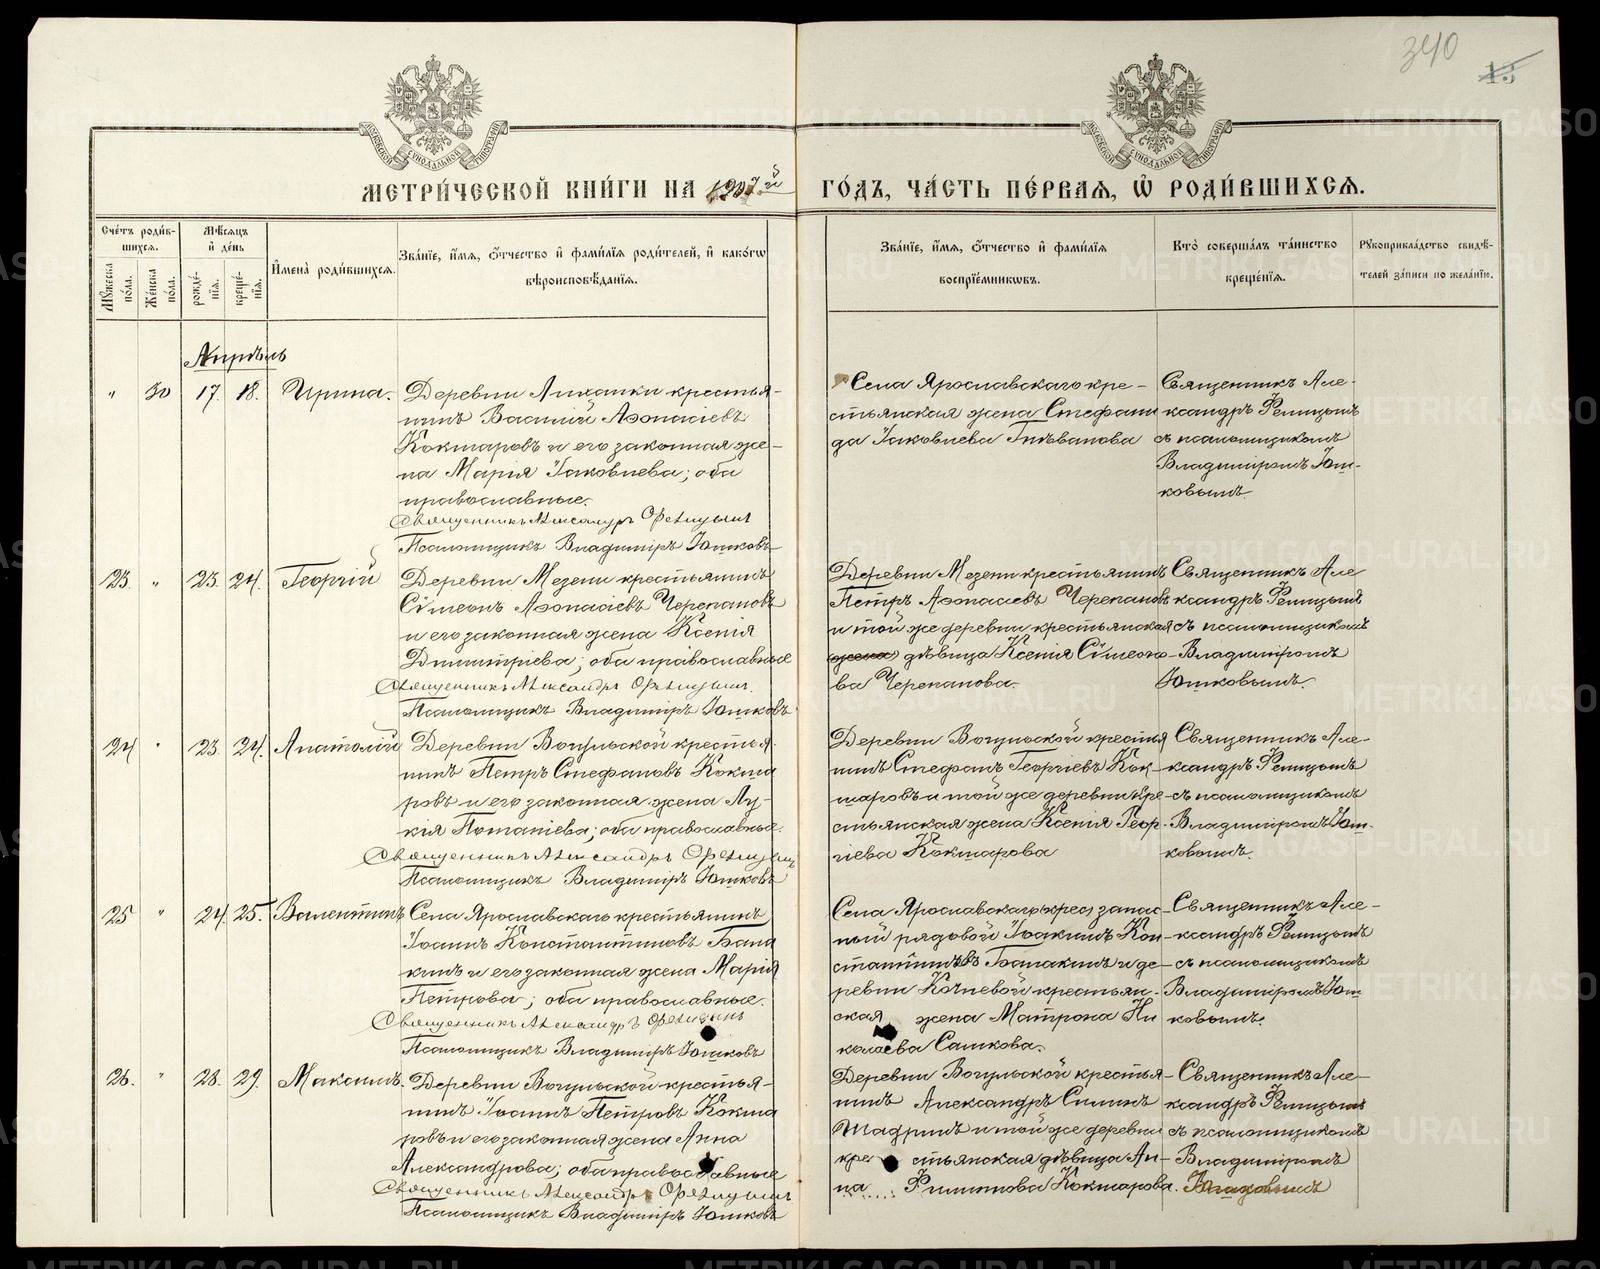 340
13
МОСКОВСКОЙ СУНОДАЛЬНОЙ ТИПОГРАФІИ
МОСКОВСКОЙ СУНОДАЛЬНОЙ ТИПОГРАФІИ
МЕТРИ́ЧЕСКОЙ КНИ́ГИ НА 1907й
ГО́ДЪ, ЧА́СТЬ ПЕ́РВАЯ, Ѡ҆ РОДИ́ВШИХСЯ.
Сче́тъ роди́вшихся.
Му́жеска по́ла.
Же́нска по́ла.
Мѣ́сяцъ и҆ де́нь
рожде́нїя.
креще́нїя.
И҆мена̀ роди́вшихся.
Зва́нїе, и҆́мя, ѻ҆́тчество и҆ фамѝлїя роди́телей, и҆ како́гѡ вѣроисповѣ́данїя.
Зва́нїе, и҆́мя, ѻ҆́тчество и҆ фамѝлїя воспрїе́мниковъ.
Кто̀ соверша́лъ та́инство креще́нїя.
Рꙋкоприкла́дство свидѣ́телей за́писи по жела́нїю.
Апрѣль
" 30 17. 18. Ирина.
Деревни Липатки крестья-
нинъ Василій Аѳонасіевъ
Кокшаровъ и его законная же-
на Марія Іаковлева; оба
православные.
Священникъ Александръ Ѳелицынъ
Псаломщикъ Владиміръ Юшковъ
Села Ярославскаго кре-
стьянская жена Стефани
да Іаковлева
Священникъ Але-
ксандръ Ѳелицынъ
съ псаломщикомъ
Владиміромъ Юш-
ковымъ.
23. " 23. 24. Георгій
Деревни Мезени крестьянинъ
Сѵмеонъ Аѳонасіевъ Черепановъ
и его законная жена Ксенія
Димитріева; оба православные
Священникъ Александръ Ѳелицынъ.
Псаломщикъ Владиміръ Юшковъ
Деревни Мезени крестьянинъ
Петръ Аѳонасіевъ Черепановъ
и той же деревни крестьянская
жена дѣвица Ксенія Сѵмеоно-
ва Черепанова.
Священникъ Але
ксандръ Ѳелицынъ
съ псаломщикомъ
Владиміромъ
Юшковымъ.
24 " 23. 24. Анатолій
Деревни Вогульской крестья-
нинъ Петръ Стефановъ Кокша
ровъ и его законная жена Лу-
кія Потапіева; оба православные.
Священникъ Александръ Ѳелицынъ
Псаломщикъ Владиміръ Юшковъ
Деревни Вогульской крестья
нинъ Стефанъ Георгіевъ Кок-
шаровъ и той же деревни кре-
стьянская жена Ксенія Геор-
гіева Кокшарова
Священникъ Але-
ксандръ Ѳелицынъ
съ псаломщикомъ
Владиміромъ Юш-
ковымъ.
25 " 24. 25. Валентинъ
Села Ярославскаго крестьянинъ
Іоаннъ Константиновъ Бала
кинъ и его законная жена Марія
Петрова; оба православные.
Священникъ Александръ Ѳелицынъ
Псаломщикъ Владиміръ Юшковъ
Села Ярославскаго крес. запас-
ный рядовой Іоакимъ Кон-
стантиновъ Балакинъ и де-
ревни Копчевой крестьян-
ская жена Матрона Ни
колаева Сашкова.
Священникъ Але-
ксандръ Ѳелицынъ
съ псаломщикомъ
Владиміромъ Юш
ковымъ.
26. " 28. 29. Максимъ.
Деревни Вогульской крестья-
нинъ Іоаннъ Петровъ Кокша
ровъ и его законная жена Анна
Александрова; оба православные
Священникъ Александръ Ѳелицынъ
Псаломщикъ Владиміръ Юшковъ
Деревни Вогульской крестья-
нинъ Александръ Силинъ
Шадринъ и той же деревни
кре стьянская дѣвица Ан-
на Филиппова Кокшарова.
Священникъ Але-
ксандръ Ѳелицынъ
съ псаломщикомъ
Владиміромъ
Юшковымъ
METRIKI.GASO-URAL.RU